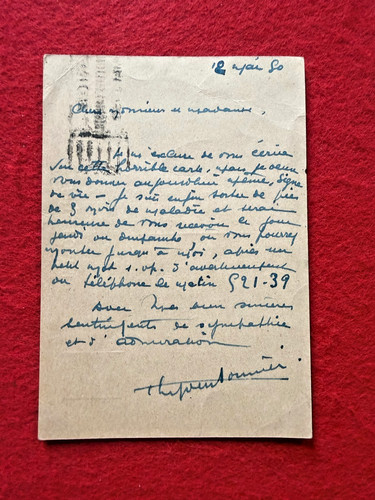 12 mai 50
Cher monsieur et madame,
Je m'excuse de vous écrire
sur cette horrible carte, mais je veux
vous donner aujourd'hui même, signe
de vie - Je suis enfin sortie de près
de 3 mois de maladie et serai
heureuse de vous recevoir le jour
jeudi ou dimanche où vous pourrez
monter jusqu'à moi, après un
petit mot s.v.p. d'avertissement
ou téléphone le matin 921-39
Avec mes bien sincères
sentiments de sympathie
et d'admiration